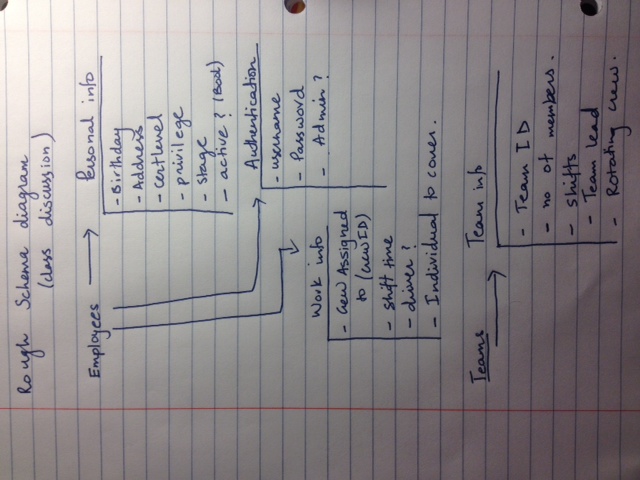 Rough Schema diagram
(class discussion)
Employees
Personal info
- Birthday
- Address
- certlevel
- privilege
- stage
- active? (Bool)
Authentication
- username
- Password
- Admin?
Work info
- Crew Assigned
to (crewID)
- shift time
- driver?
- Individual to cover.
Teams
Team info
- Team ID
- no of members.
- shifts
- Team lead
- Rotating crew.